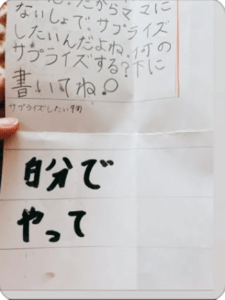 だからママに
ないしょで、サプライズ
したいんだよね、何の
サプライズする?下に
書いてね!
サプライズしたい物
自分で
やって